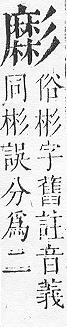 俗彬字舊註音義
同彬誤分爲二